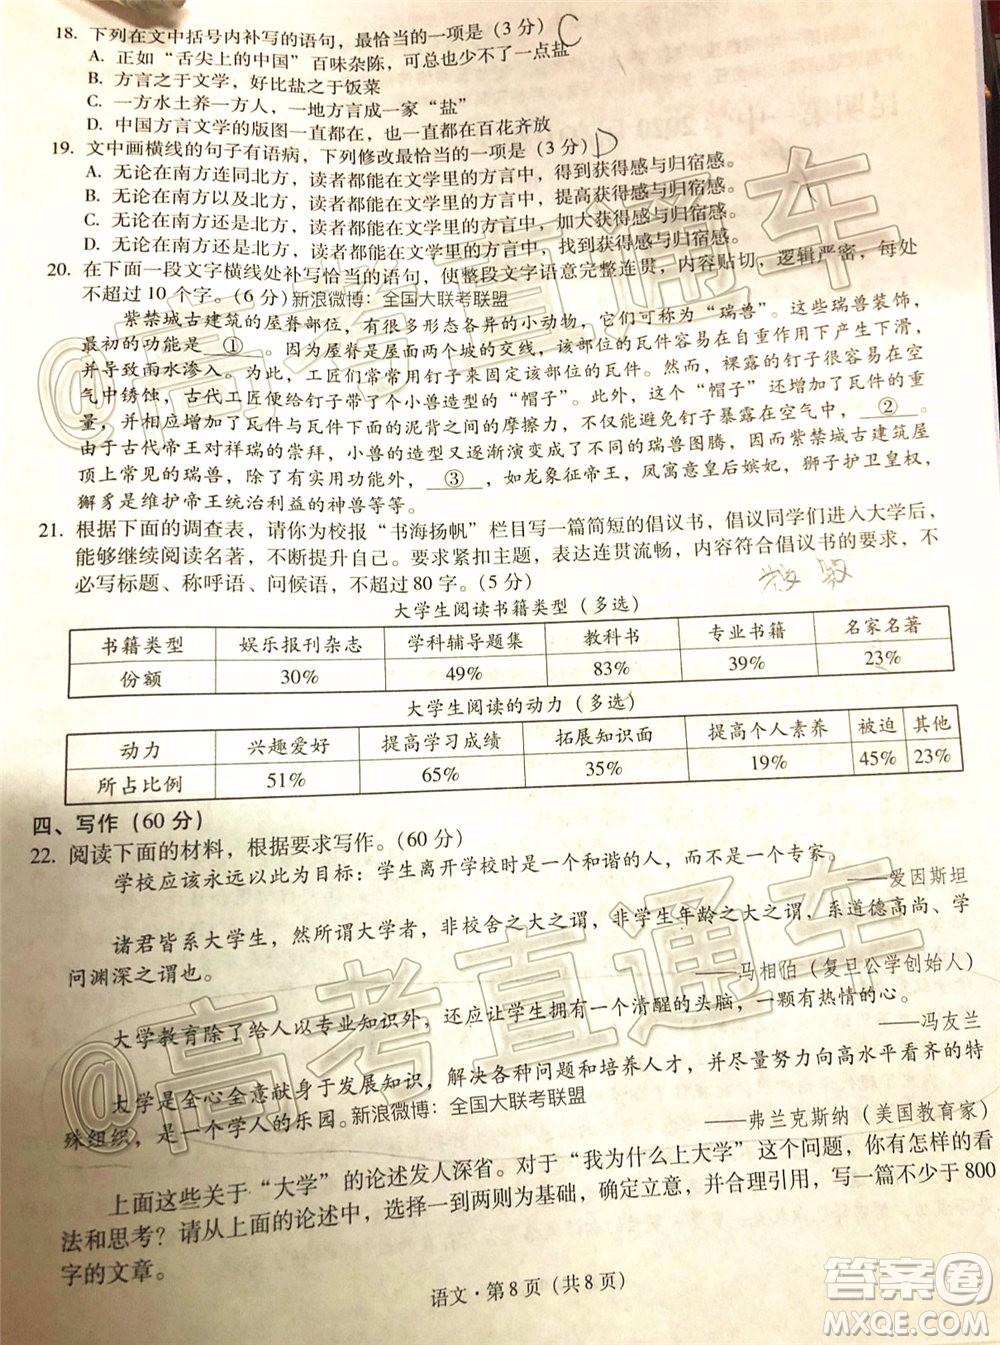 18. 下列在文中括号内补写的语句，最恰当的一项是（3 分） C
A. 正如“舌尖上的中国”百味杂陈，可总也少不了一点盐
B. 方言之于文学，好比盐之于饭菜
C. 一方水土养一方人，一地方言成一家“盐”
D. 中国方言文学的版图一直都在，也一直都在百花齐放
19. 文中画横线的句子有语病，下列修改最恰当的一项是（3 分） D
A. 无论在南方连同北方，读者都能在文学里的方言中，得到获得感与归宿感。
B. 无论在南方以及北方，读者都能在文学里的方言中，提高获得感与归宿感。
C. 无论在南方还是北方，读者都能在文学里的方言中，加大获得感与归宿感。
D. 无论在南方还是北方，读者都能在文学里的方言中，找到获得感与归宿感。
20. 在下面一段文字横线处补写恰当的语句，使整段文字语意完整连贯，内容贴切，逻辑严密，每处
不超过 10 个字。（6 分）新浪微博：全国大联考联盟
紫禁城古建筑的屋脊部位，有很多形态各异的小动物，它们可称为“瑞兽”。这些瑞兽装饰，
最初的功能是 ① 。因为屋脊是屋面两个坡的交线，该部位的瓦件容易在自重作用下产生下滑，
并导致雨水渗入。因此，工匠们常常用钉子来固定该部位的瓦件。然而，裸露的钉子很容易在空
气中锈蚀，古代工匠便给钉子带了个小兽造型的“帽子”。这个“帽子”还增加了瓦件的重
量，并相应地增加了瓦件与瓦件下面的泥背之间的摩擦力，不仅能避免钉子裸露在空气中， ② 。
由于古代帝王对祥瑞的崇拜，小兽的造型又逐渐演变成了不同的瑞兽图腾，因而，紫禁城古建筑屋
顶上常见的瑞兽，除了具有保护瓦件的实体功能外， ③ ，如龙象征帝王，凤寓意皇后嫔妃，狮子护卫皇权，
獬豸是维护帝王统治利益的神兽等等。
21. 根据下面的调查表，请你为校报“书海扬帆”栏目写一篇简短的倡议书，倡议同学们进入大学后，
能够继续阅读名著，不断提升自己。要求紧扣主题，表达连贯流畅，内容符合倡议书的要求，不
必写标题、称呼语、问候语，不超过 80 字。（5 分）
大学生阅读书籍类型（多选）
书籍类型 娱乐报刊杂志 学科辅导题集 教科书 专业书籍 名家名著
份额 30% 49% 83% 39% 23%
大学生阅读的动力（多选）
动力 兴趣爱好 提高学习成绩 拓展知识面 提高个人素养 被迫 其他
所占比例 51% 65% 35% 19% 45% 23%
四、写作（60 分）
22. 阅读下面的材料，根据要求写作。（60 分）
学校应该永远以此为目标：学生离开学校时是一个和谐的人，而不是一个专家。
——爱因斯坦
诸君皆系大学生，然所谓大学者，非校舍之大之谓，非学生年龄之大之谓，系道德高尚、学
问渊深之谓也。
——马相伯（复旦公学创始人）
大学教育除了给人以专业知识外，还应让学生拥有一个清醒的头脑，一颗有热情的心。
——冯友兰
大学是全心全意献身于发展知识，解决各种问题和培养人才，并尽量向高水平看齐的特
殊组织，是一个学人的乐园。新浪微博：全国大联考联盟
——弗兰克斯纳（美国教育家）
上面这些关于“大学”的论述发人深省。对于“我为什么上大学”这个问题，你有怎样的看
法和思考？请从上面的论述中，选择一到两则为基础，确定立意，并合理引用，写一篇不少于 800
字的文章。
语文·第 8 页（共 8 页）
@高考直通车
@高考直通车
答案卷
MXQE.COM